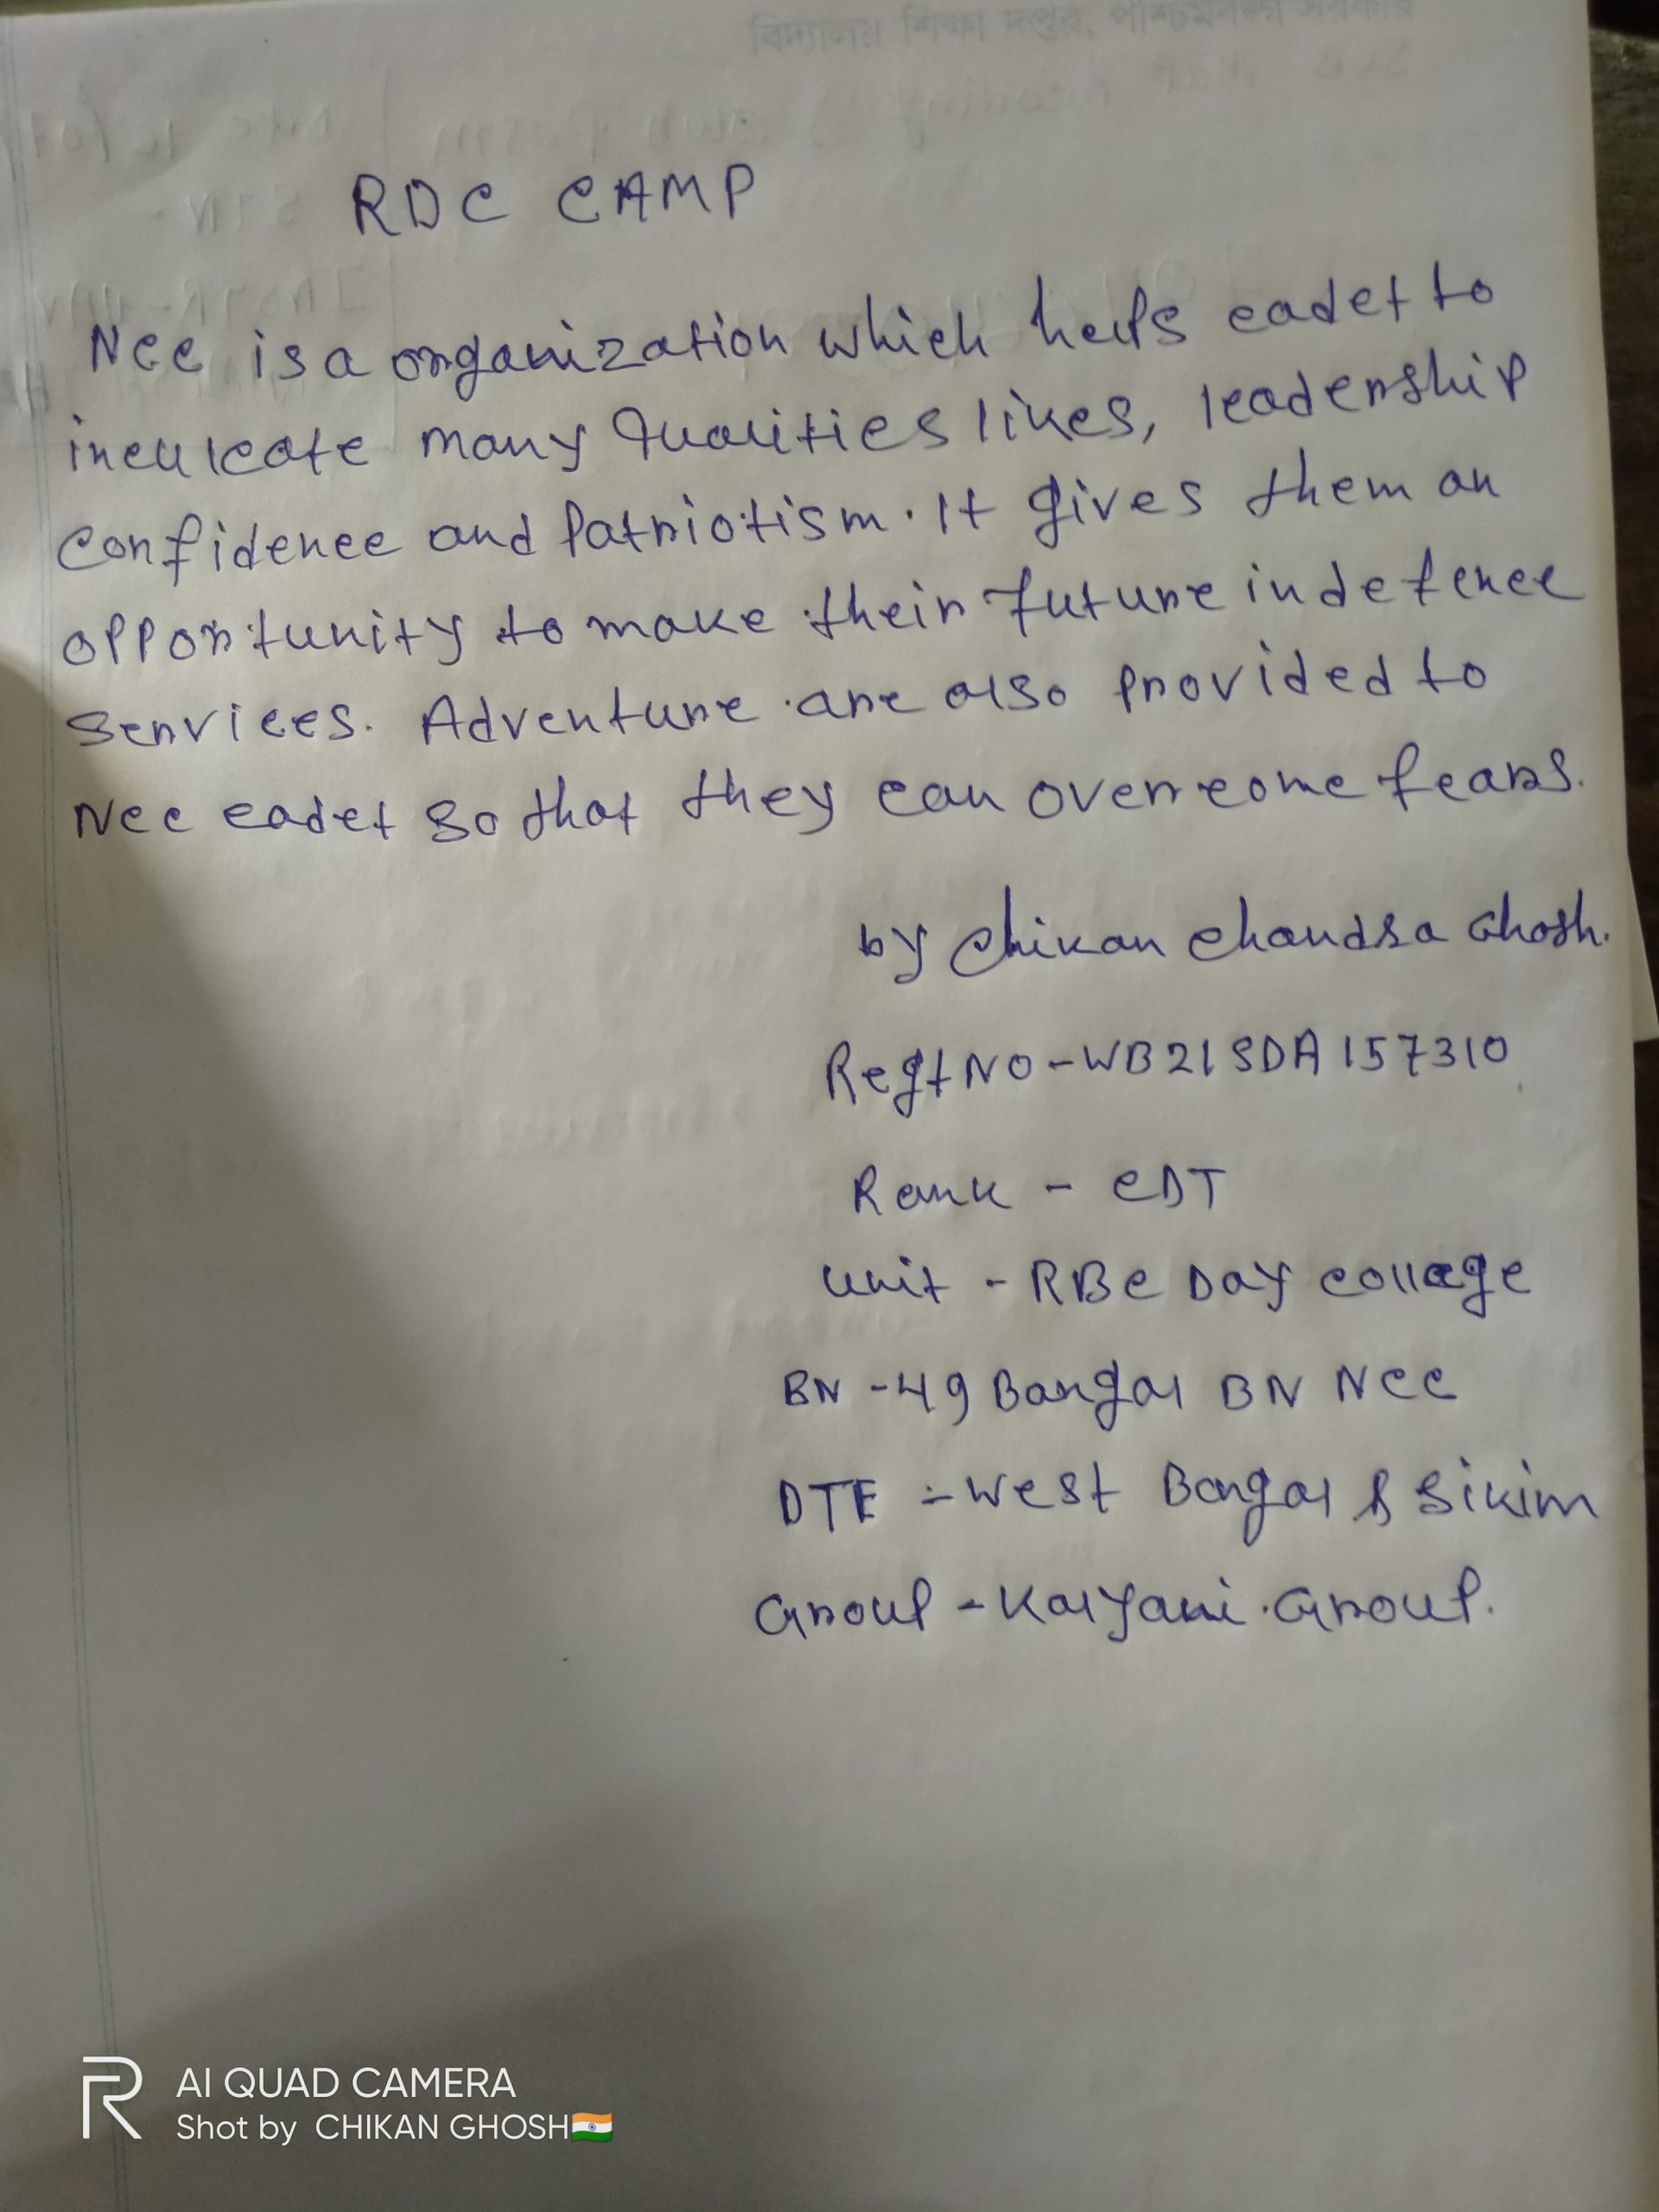 বিদ্যালয় শিক্ষা দপ্তর, পশ্চিমবঙ্গ সরকার
RDC CAMP
NCC is a organization which helps cadet to
inculcate many qualities likes, leadership
confidence and patriotism. It gives them an
opportunity to make their future in defence
services. Adventure are also provided to
NCC cadet so that they can overcome fears.
by Chikan Chandra Ghosh.
Regt NO - WB21SDA157310
Rank - CDT
Unit - RBC Day College
BN - 49 Bangal BN NCC
DTE :- West Bangal & Sikim
Group - Kalyani. Group.
AI QUAD CAMERA
Shot by CHIKAN GHOSH🇮🇳